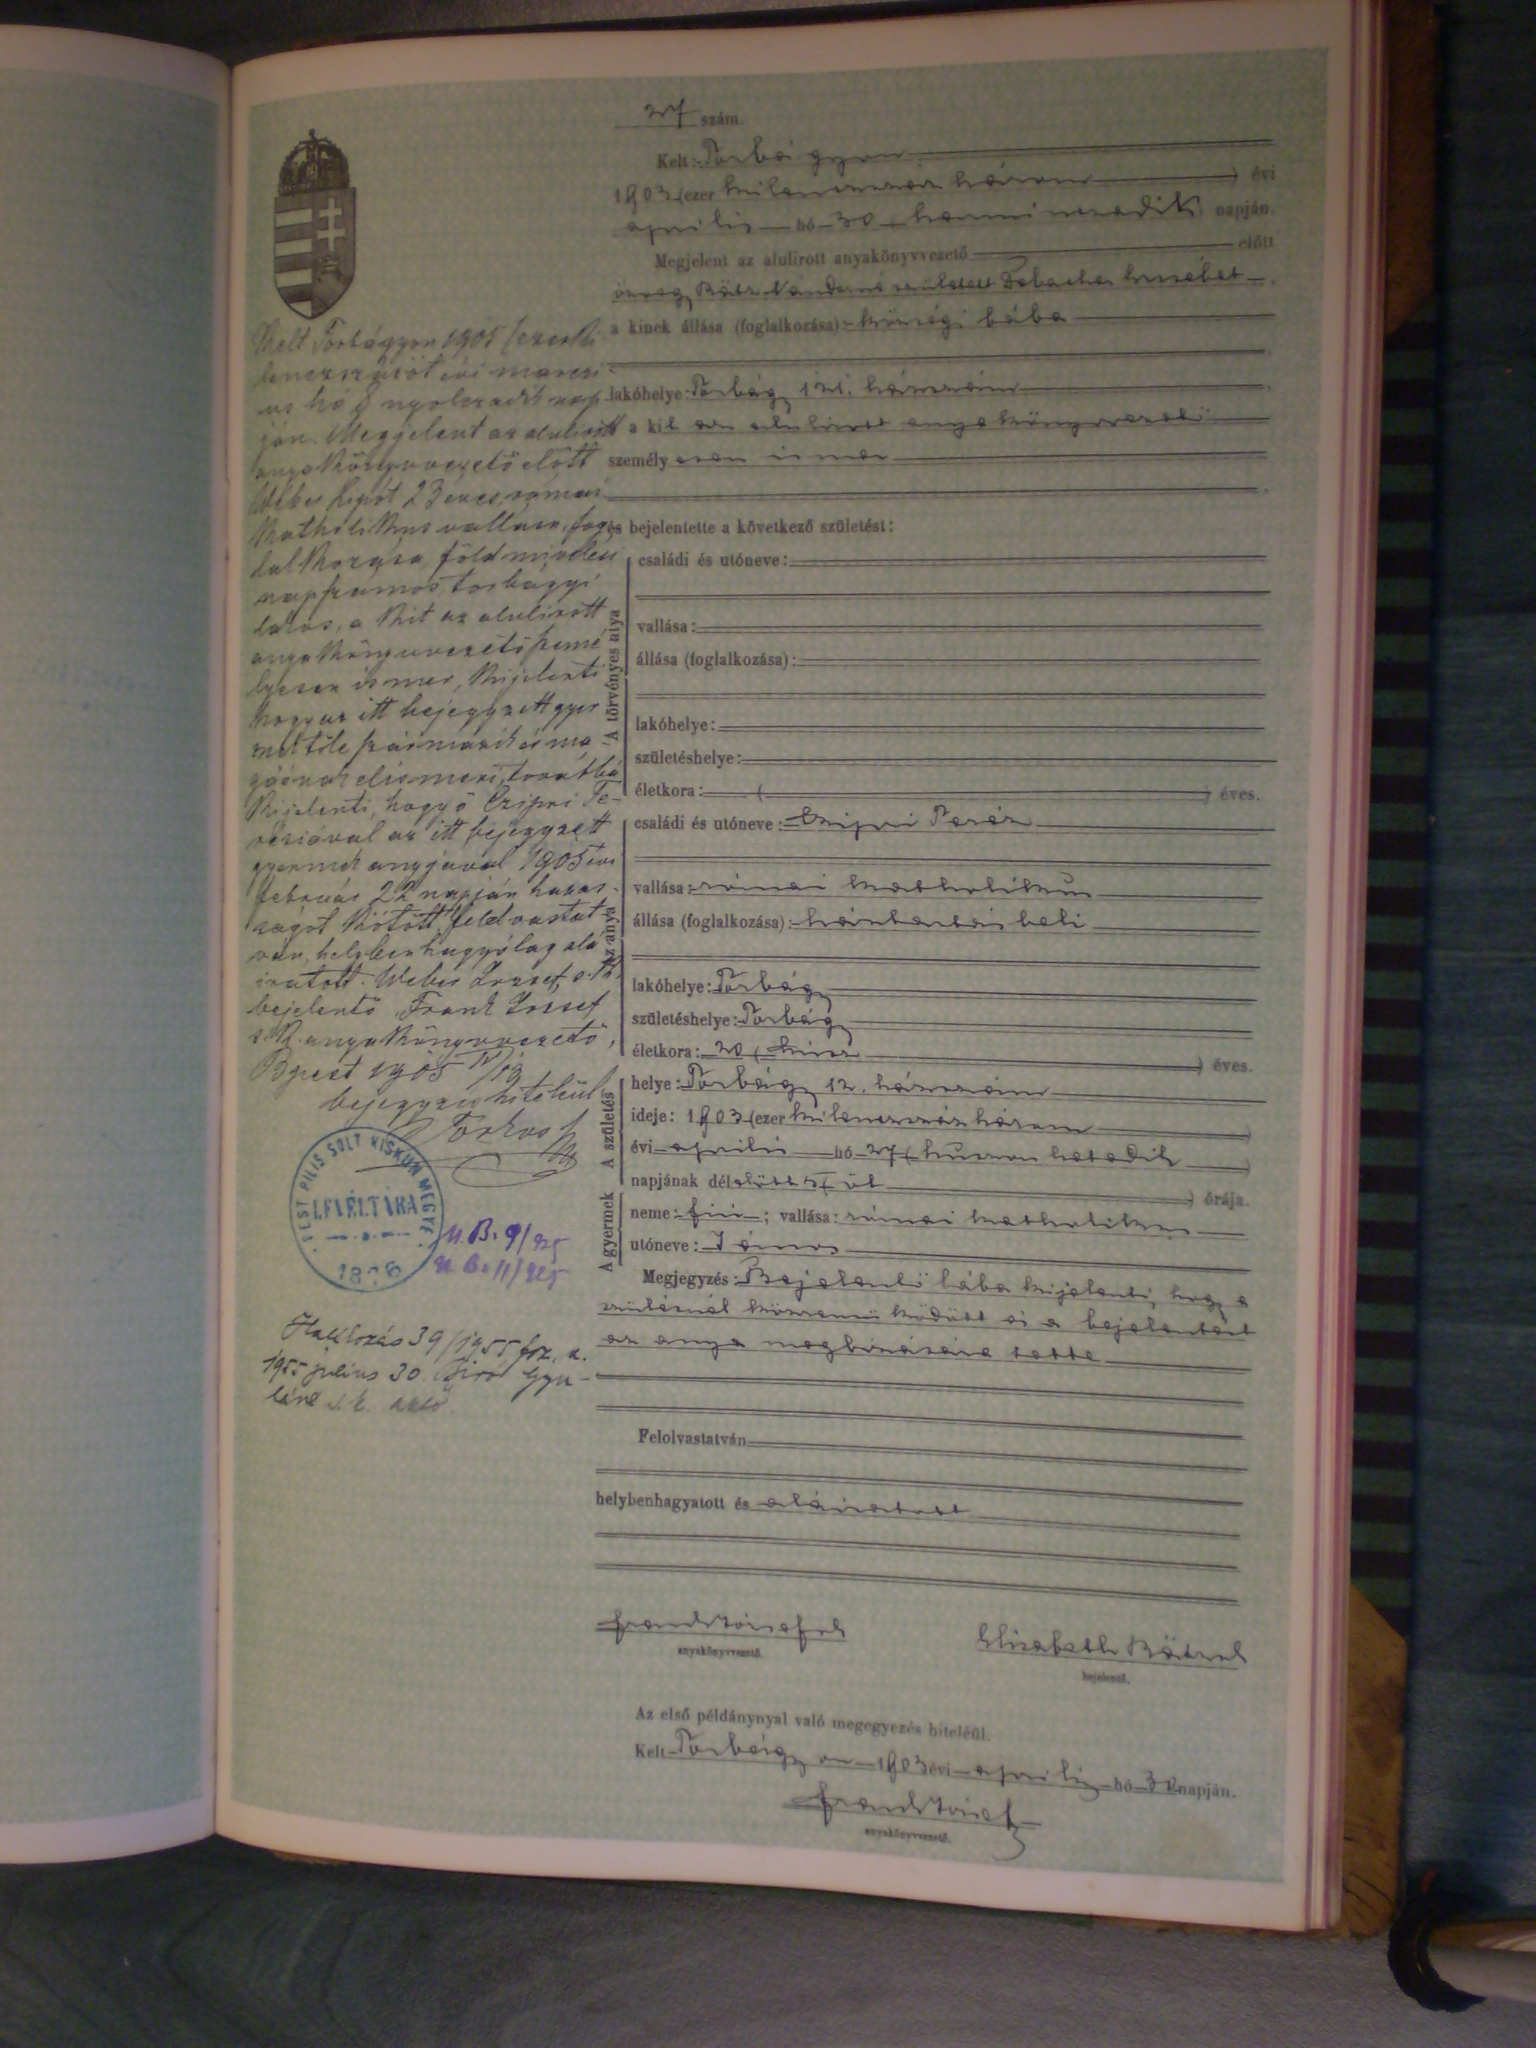 27 szám.
Kelt: Torbágyon
1903 (ezer kilenczszáz három) évi
április hó 30 (harminczadik) napján.
Megjelent az alulirott anyakönyvvezető előtt
özvegy Nándorné született Erzsébet
a kinek állása (foglalkozása): községi bába
lakóhelye: Torbágy 121. házszám
a kit az alulirott anyakönyvvezető
személyesen ismer
és bejelentette a következő születést:
A törvényes atya
családi és utóneve:
vallása:
állása (foglalkozása):
lakóhelye:
születéshelye:
életkora: ( ) éves.
Az anya
családi és utóneve: Czipri Teréz
vallása: római katholikus
állása (foglalkozása): háztartásbeli
lakóhelye: Torbágy
születéshelye: Torbágy
életkora: 20 (húsz) éves.
A születés
helye: Torbágy 12. házszám
ideje: 1903 (ezer kilenczszáz három)
évi április hó 27 (huszonhetedik)
napjának délelőtt 5 (öt) órája.
A gyermek
neme: fiú; vallása: római katholikus
utóneve: János
Megjegyzés: Bejelentő bába kijelenti, hogy a
szülésnél közreműködött és a bejelentést
az anya megbízására tette
Felolvastatván
helybenhagyatott és aláiratott
anyakönyvvezető.
Elisabeth
bejelentő.
Az első példánynyal való megegyezés hiteléül.
Kelt Torbágyon 1903 évi április hó 30 napján.
Frank József
anyakönyvvezető.
Kelt Torbágyon 1905 (ezerki-
lenczszázöt évi márczi-
us hó 8 nyolczadik nap-
ján. Megjelent az alulirott
anyakönyvvezető előtt
Weber 23 éves, római
katholikus vallású, fog-
lalkozása, földmivelési
napszámos, torbágyi
lakos, a kit az alulirott
anyakönyvvezető szemé-
lyesen ismer, kijelenti
hogy az itt bejegyzett gyer-
mek tőle származik és ma-
gáénak elismeri, továbbá
kijelenti, hogy ő Czipri Te-
réziával az itt bejegyzett
gyermek anyjával 1905 évi
február 22 napján házas-
ságot kötött. Felolvastat-
ván, helybenhagyólag alá-
iratott. Weber József s. k.
bejelentő. Frank József
s. k. anyakönyvvezető,
Bpest 1905 IV/19
bejegyzés hiteléül:
PEST PILIS SOLT KISKUN MEGYE
LEVÉLTÁRA
U. B. 9/925
U. B. 11/925
39/1955 fsz. a.
1955 július 30. Biró Gyu-
láné s. k.